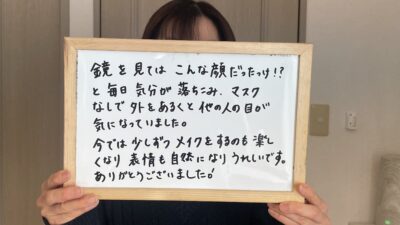 鏡を見ては こんな顔だったっけ!?
と毎日気分が落ちこみ、マスク
なしで外をあるくと他の人の目が
気になっていました。
今では少しずつメイクをするのも楽し
くなり表情も自然になりうれしいです。
ありがとうございました!